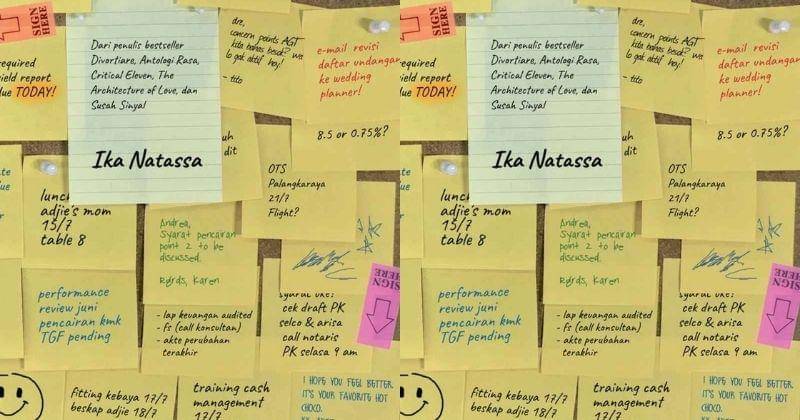 SIGN
HERE
equired
ield report
ue TODAY!
Dari penulis bestseller
Divortiare, Antologi Rasa,
Critical Eleven, The
Architecture of Love, dan
Susah Sinyal
Ika Natassa
dre,
concern points AGT
kita bahas besok?
lo gak aktif
- tito
e-mail revisi
daftar undangan
ke wedding
planner!
8.5 or 0.75%?
uh
dit
OTS
Palangkaraya
21/7
Flight?
te
ue
lunch
adjie's mom
15/7
table 8
Andrea,
Syarat pencairan
point 2 to be
discussed.
Rgrds, Karen
SIGN
HERE
performance
review juni
pencairan kmk
TGF pending
- lap keuangan audited
- fs (call konsultan)
- akte perubahan
terakhir
cek draft PK
selco & arisa
call notaris
PK selasa 9 am
fitting kebaya 17/7
beskap adjie 18/7
training cash
management
17/7
I HOPE YOU FEEL BETTER.
IT'S YOUR FAVORITE HOT
CHOCO.
SIGN
HERE
equired
ield report
ue TODAY!
Dari penulis bestseller
Divortiare, Antologi Rasa,
Critical Eleven, The
Architecture of Love, dan
Susah Sinyal
Ika Natassa
dre,
concern points AGT
kita bahas besok?
lo gak aktif
- tito
e-mail revisi
daftar undangan
ke wedding
planner!
8.5 or 0.75%?
uh
dit
OTS
Palangkaraya
21/7
Flight?
te
ue
lunch
adjie's mom
15/7
table 8
Andrea,
Syarat pencairan
point 2 to be
discussed.
Rgrds, Karen
SIGN
HERE
performance
review juni
pencairan kmk
TGF pending
- lap keuangan audited
- fs (call konsultan)
- akte perubahan
terakhir
cek draft PK
selco & arisa
call notaris
PK selasa 9 am
fitting kebaya 17/7
beskap adjie 18/7
training cash
management
17/7
I HOPE YOU FEEL BETTER.
IT'S YOUR FAVORITE HOT
CHOCO.